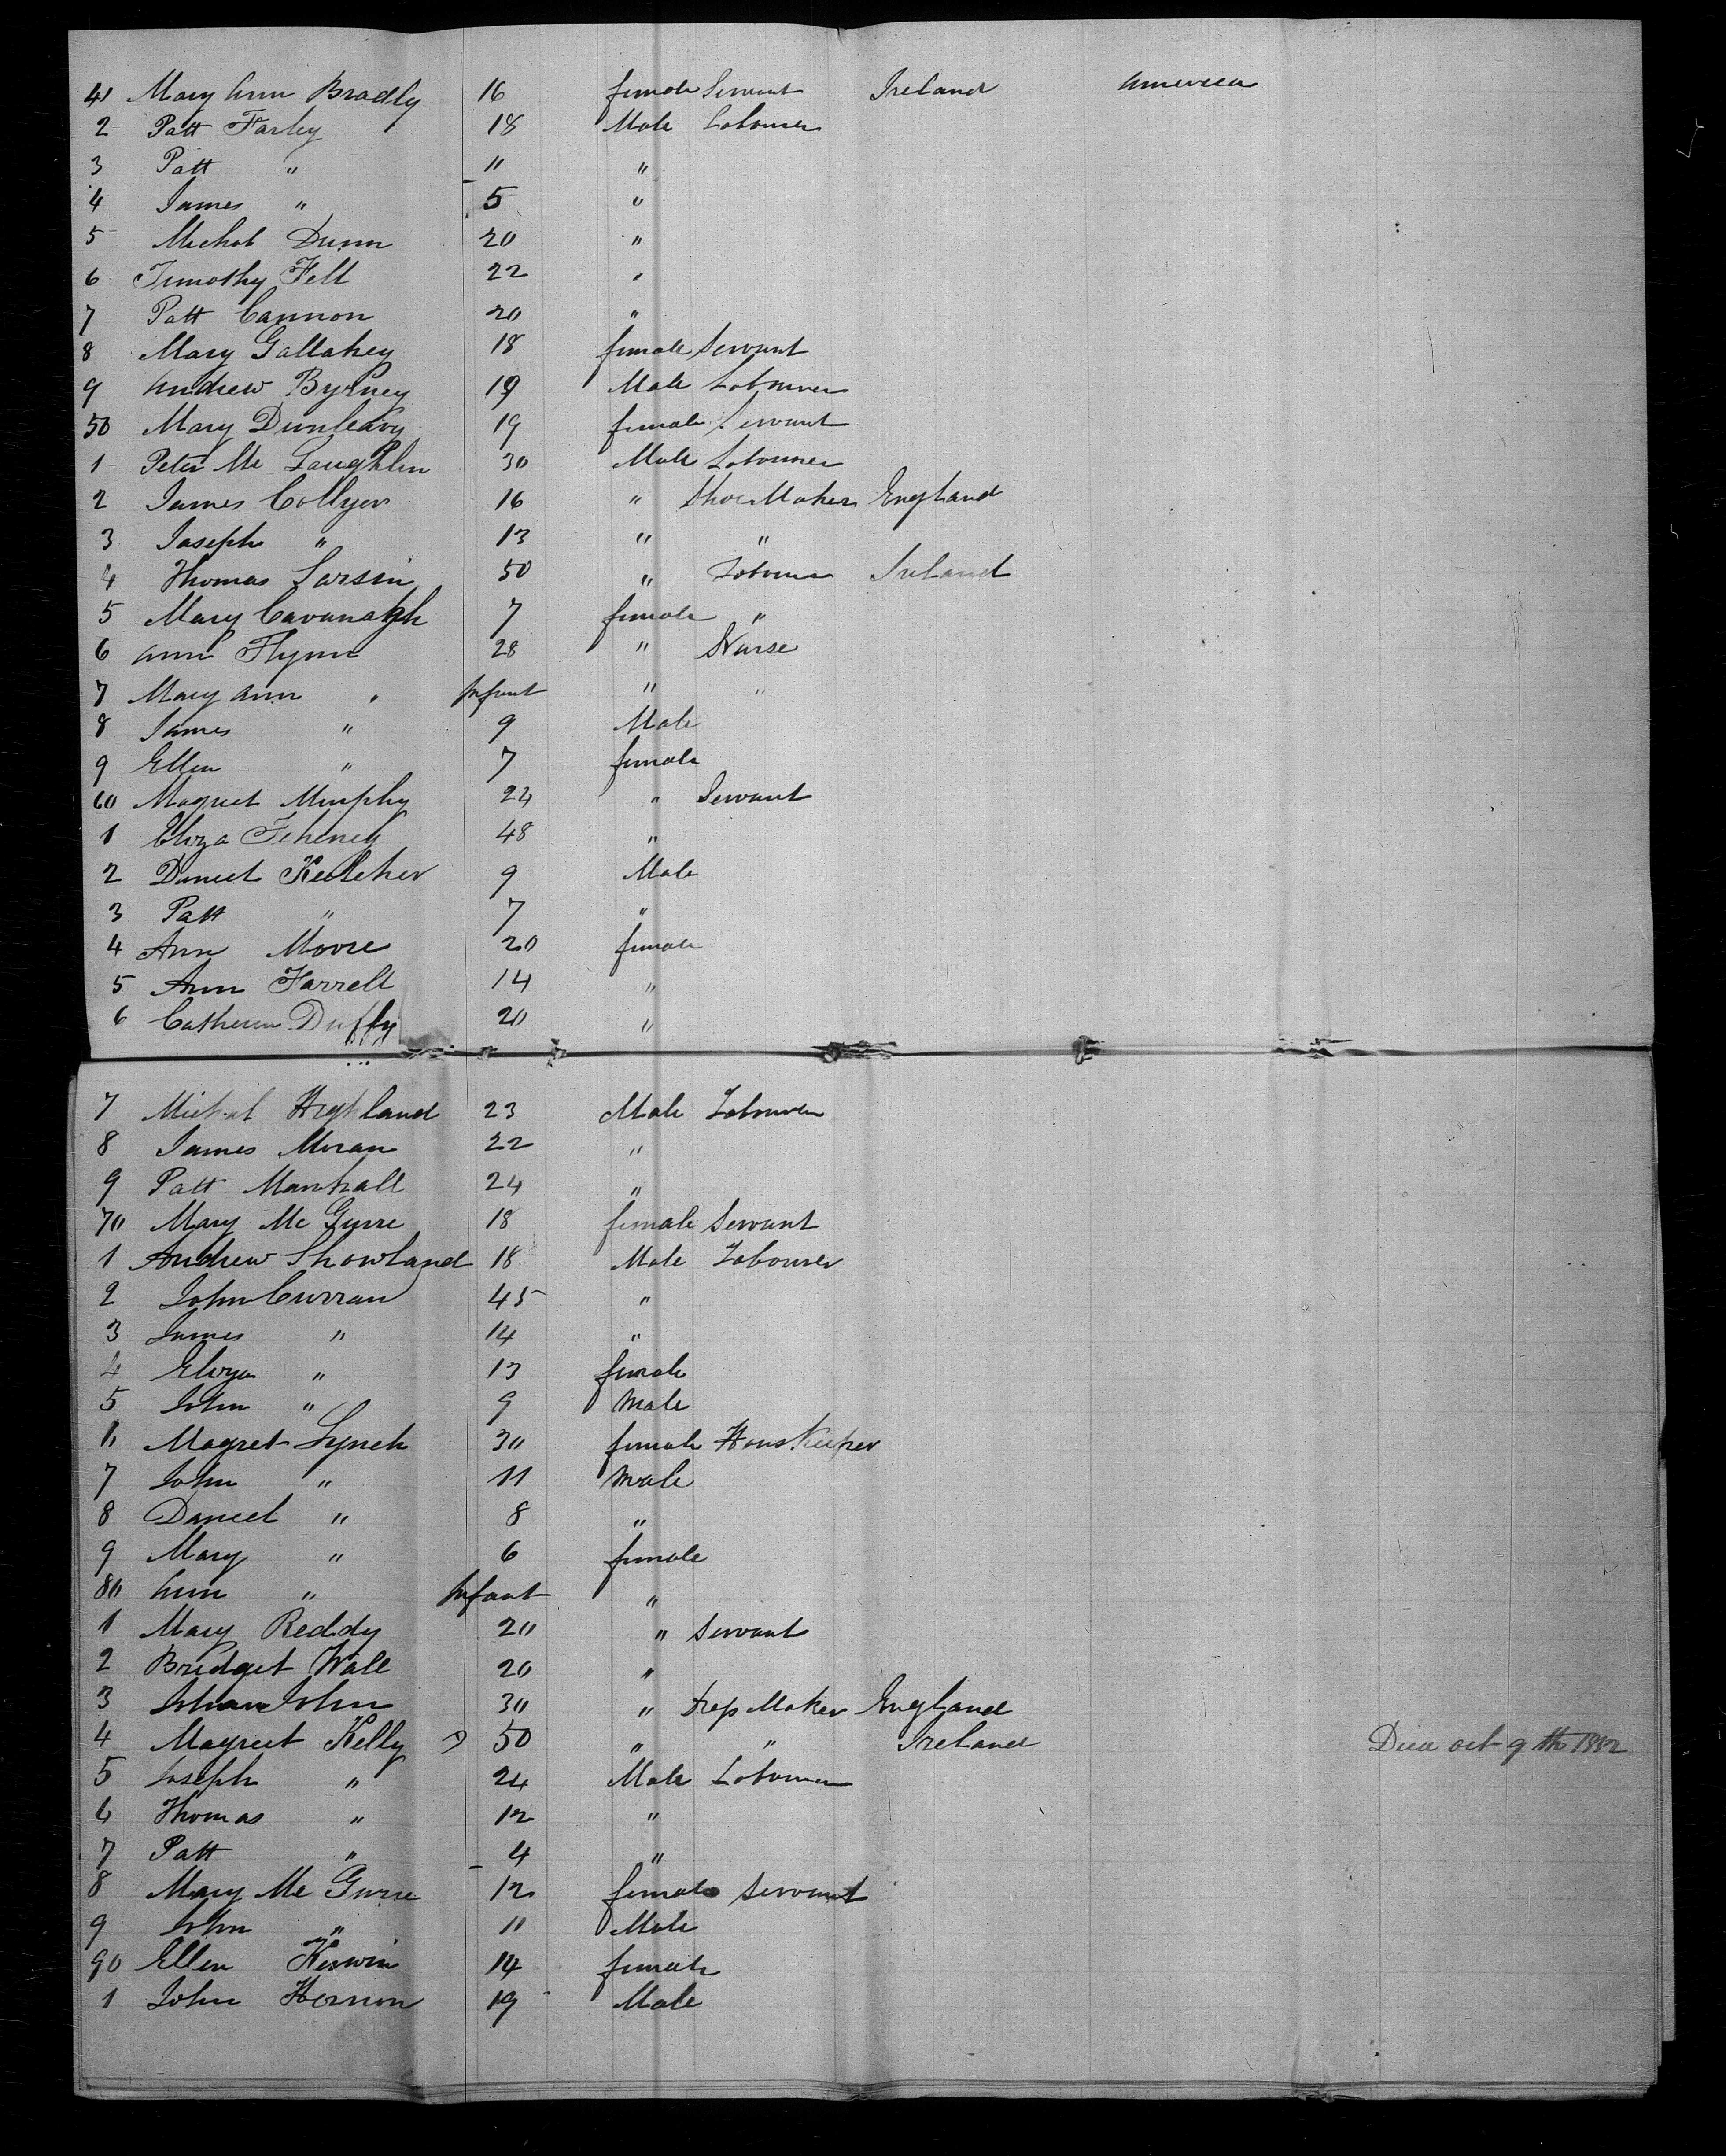 41 Mary Ann Bradly 16 female Servant Ireland America
2 Patt Farley 18 Male Labourer
3 Patt " 11 "
4 James " 5 "
5 Michal Dunn 20 "
6 Timothy Fell 22 "
7 Patt Cannon 20 "
8 Mary Gallahey 18 female Servant
9 Andrew Byrney 19 Male Labourer
50 Mary Dunleavy 19 female Servant
1 Peter Mc Laughlin 30 Male Labourer
2 James Collyer 16 " Shoe Maker England
3 Joseph " 13 " "
4 Thomas Larsin 50 " Labourer Ireland
5 Mary Cavanaugh 7 female "
6 Ann Flynn 28 " Nurse
7 Mary Ann " Infant " "
8 James " 9 Male
9 Ellen " 7 female
60 Magret Murphy 24 " Servant
1 Eliza Feheney 48 "
2 Daniel Kelleher 9 Male
3 Patt " 7 "
4 Ann Moore 20 female
5 Ann Farrell 14 "
6 Catherin Duffy 20 "
7 Michal Highland 23 Male Labourer
8 James Moran 22 "
9 Patt Manhall 24 "
70 Mary Mc Gurre 18 female Servant
1 Andrew Showland 18 Male Labourer
2 John Curran 45 "
3 James " 14 "
4 Eliza " 13 female
5 John " 9 male
6 Magret Lynch 30 female Hous Keeper
7 John " 11 male
8 Daniel " 8 "
9 Mary " 6 female
80 Ann " Infant "
1 Mary Reddy 20 " Servant
2 Bridget Wall 20 "
3 John 30 " Maker England
4 Magreet Kelly 50 " " Ireland Died Oct 9th 1882
5 Joseph " 24 Male Labourer
6 Thomas " 12 "
7 Patt " 4 "
8 Mary Mc Gurre 12 female Servant
9 John " 11 Male
90 Ellen Kerwin 14 female
1 John Hernon 19 Male